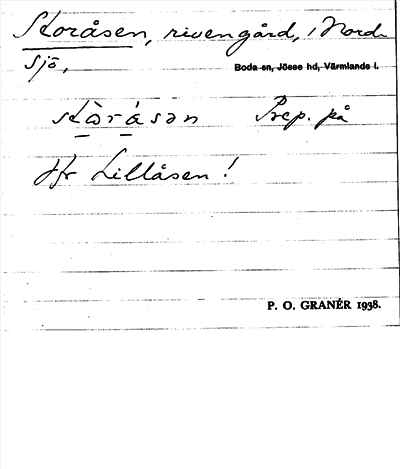 Storåsen, riven gård, i Nord-
sjö,
Boda sn, Jösse hd, Värmlands l.
stòrǻsən Prep. på
Jfr Lillåsen!
P. O. GRANÉR 1938.